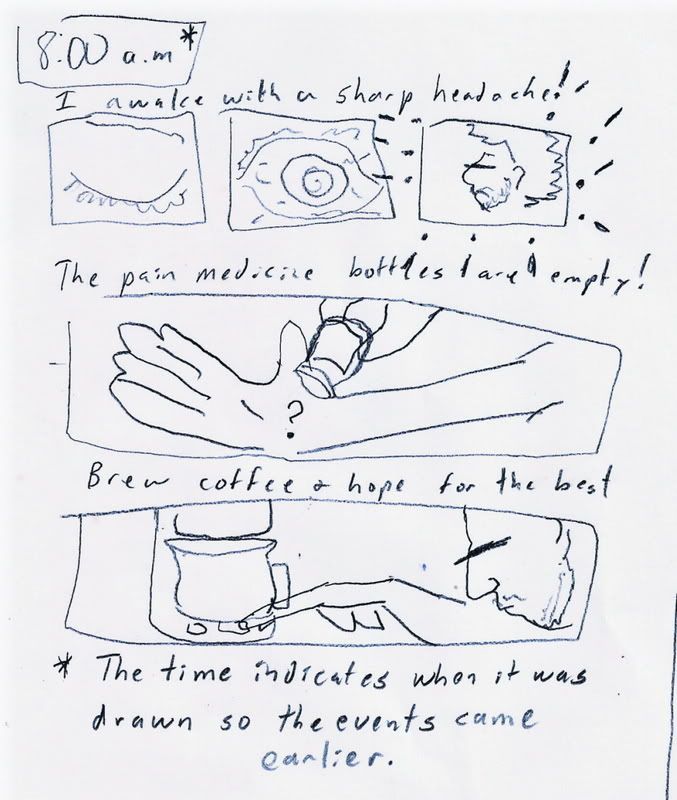 8:00 a.m*
I awake with a sharp headache!
The pain medicine bottles are empty!
?
Brew coffee & hope for the best
* The time indicates when it was
drawn so the events came
earlier.